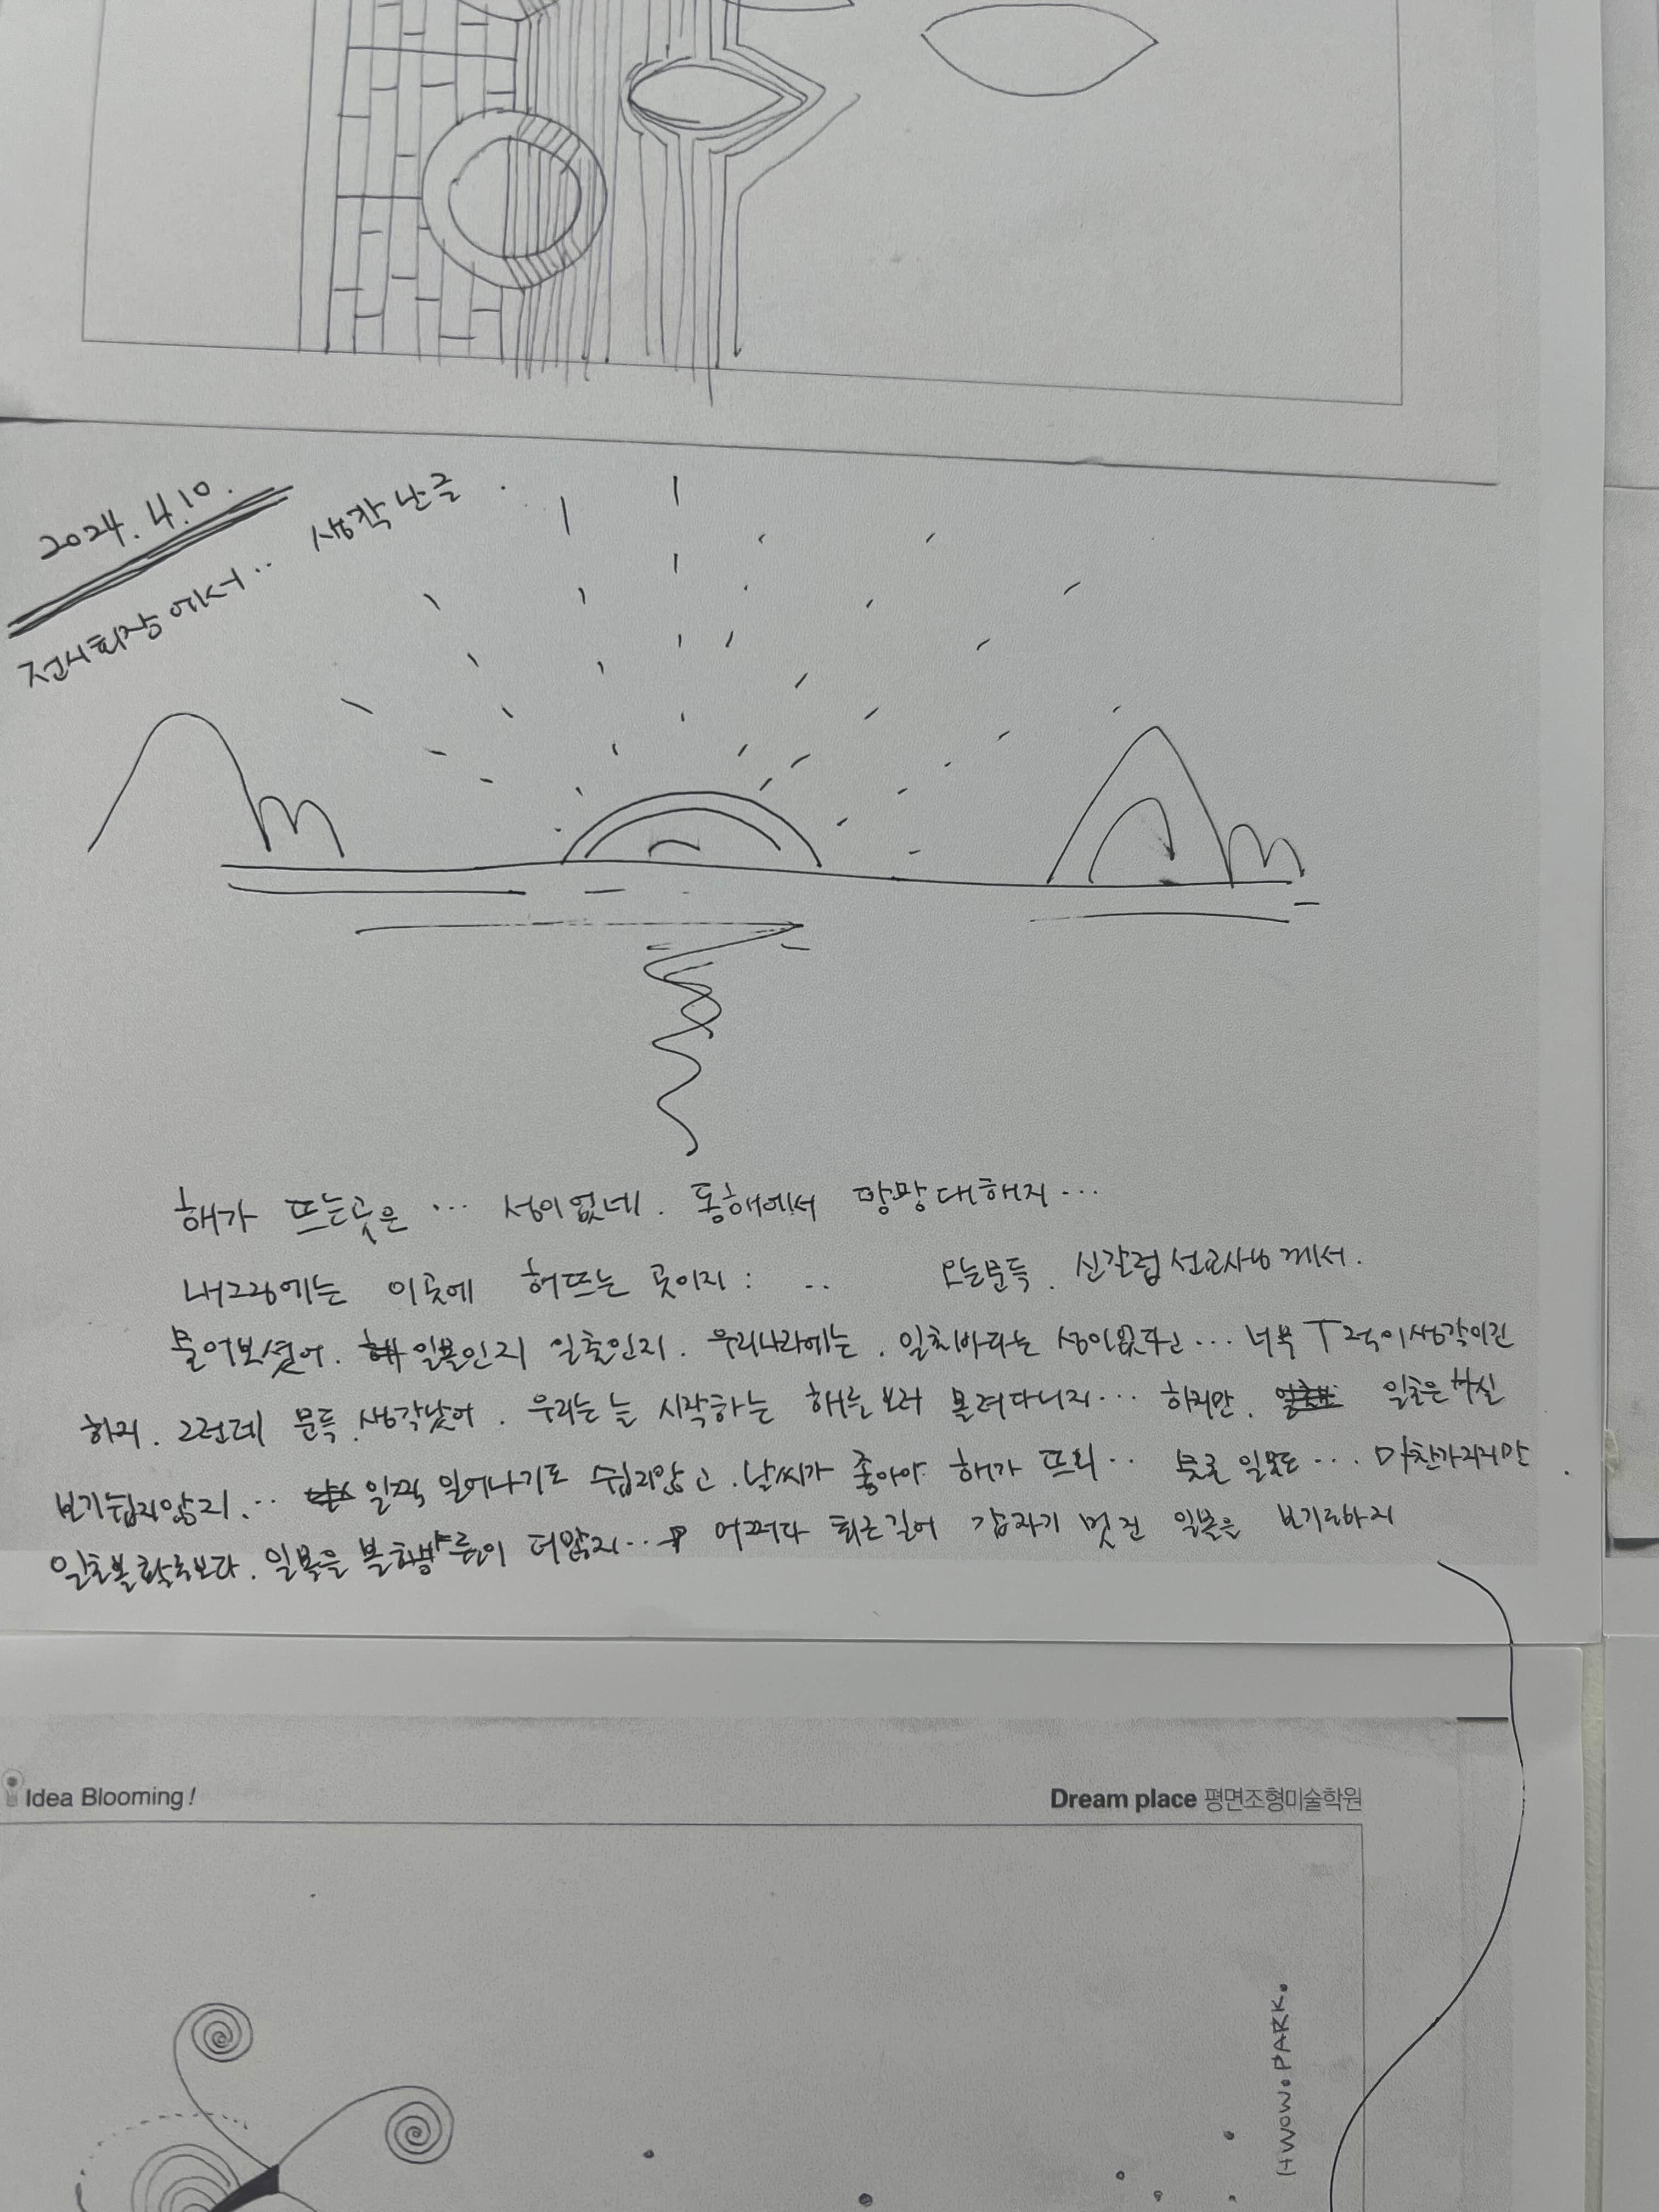 2024. 4.10.
전시회장에서.. 생각난글.
해가 뜨는곳은 ... 섬이없네. 동해에서 망망대해지...
내그림에는 이곳에 해뜨는 곳이지: .. 오늘문득. 신갈렙선교사님께서.
물어보셨어. 일몰인지 일출인지. 우리나라에는. 일출바다는 섬이없다고... 너무 T적이생각이긴
하지. 그런데 문득.생각났어. 우리는 늘 시작하는 해를보러 몰려다니지... 하지만. 일출은사실
보기쉽지않지... 일찍 일어나기도 쉽지않고.날씨가 좋아야 해가 뜨지.. 물론 일몰도... 마찬가지지만.
일출볼확률보다. 일몰을 볼확률이 더많지... 어쩌다 퇴근길에 갑자기 멋진 일몰을 보기도하지
Idea Blooming!
Dream place 평면조형미술학원
HWOW. PARK.